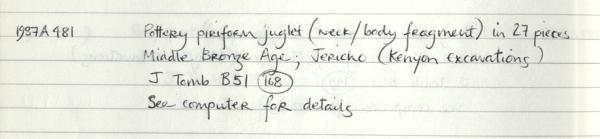 1987A481 Pottery piriform juglet (neck/body fragment) in 27 pieces
Middle Bronze Age; Jericho (Kenyon excavations)
J Tomb B51 168
See computer for details